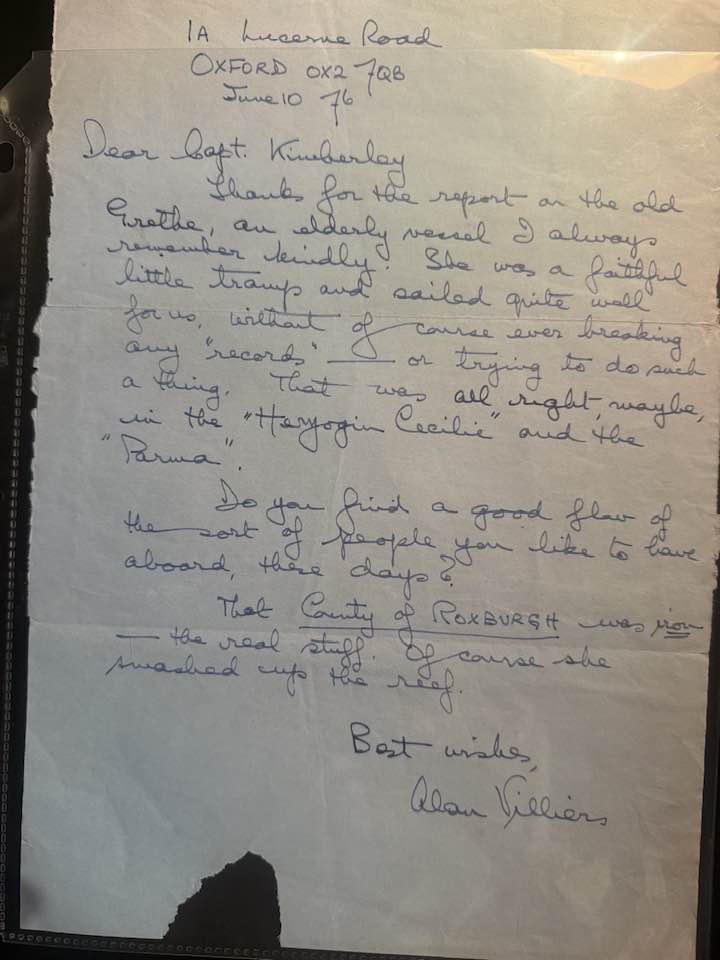 1A Lucerne Road
OXFORD OX2 7QB
June 10 76
Dear Capt. Kimberley
Thanks for the report on the old
Grethe, an elderly vessel I always
remember kindly. She was a faithful
little tramp and sailed quite well
for us, without of course ever breaking
any "records" — or trying to do such
a thing. That was all right, maybe,
in the "Herzogin Cecilie" and the
"Parma".
Do you find a good flow of
the sort of people you like to have
aboard, these days?
That County of ROXBURGH was iron
— the real stuff. Of course she
smashed up the reef.
Best wishes,
Alan Villiers